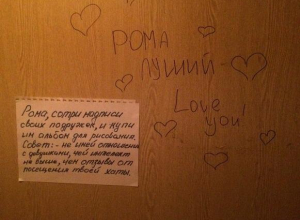 РОМА
ЛУЧШИЙ
Love
you!
Рома, сотри надписи
своих подружек, и купи
им альбом для рисования.
Совет: - не имей отношения
с девушками, чей интеллект
не выше, чем отзывы от
посещения твоей хаты.